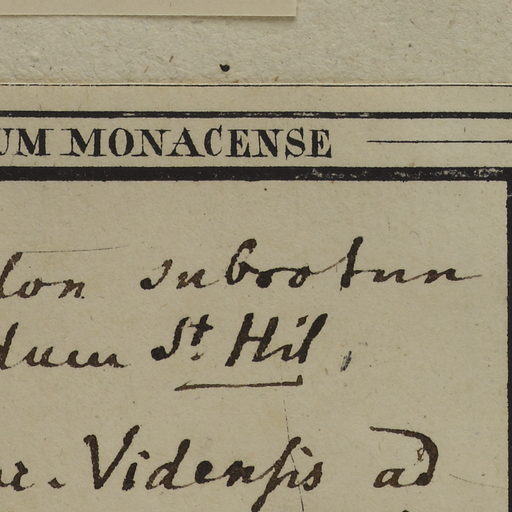 UM MONACENSE
lon subrotun
dum St. Hil,
ar. Videnſis ad